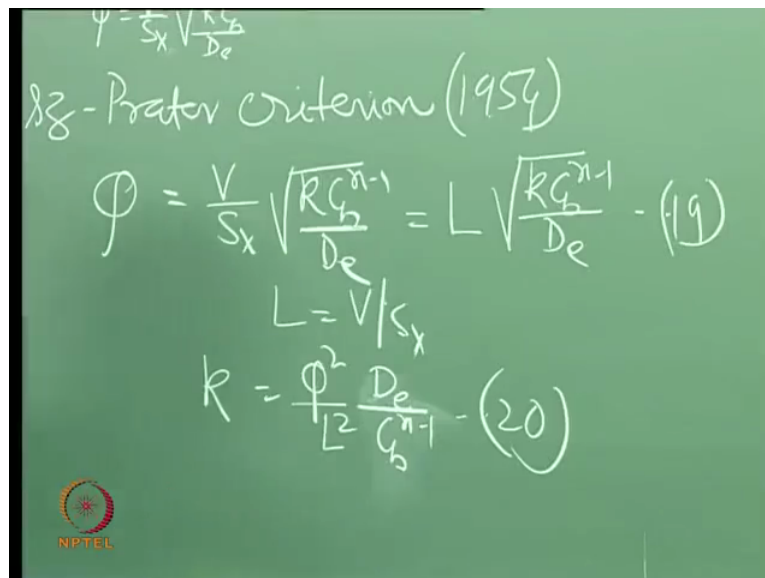 φ = 1/Sx √(kCb/De)
sz-Prater Criterion (1954)
φ = V/Sx √(kCb^(n-1)/De) = L √(kCb^(n-1)/De) - (19)
L = V/Sx
k = φ²/L² De/Cb^(n-1) - (20)
NPTEL